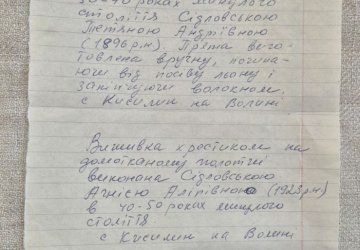 30-40 роках минулого
століття Сідловською
Тетяною Андрівною
(1896 р.н) Пряжа виго-
товлена вручну, почина-
ючи від посіву льону і
закінчуючи волокном.
с Кисилин на Волині
Вишивка хрестиком на
домотканому полотні
виконана Сідловською
Агнією Аліпівною (1923 р.н)
в 40-50 роках минулого
століття
с Кисилин на Волині